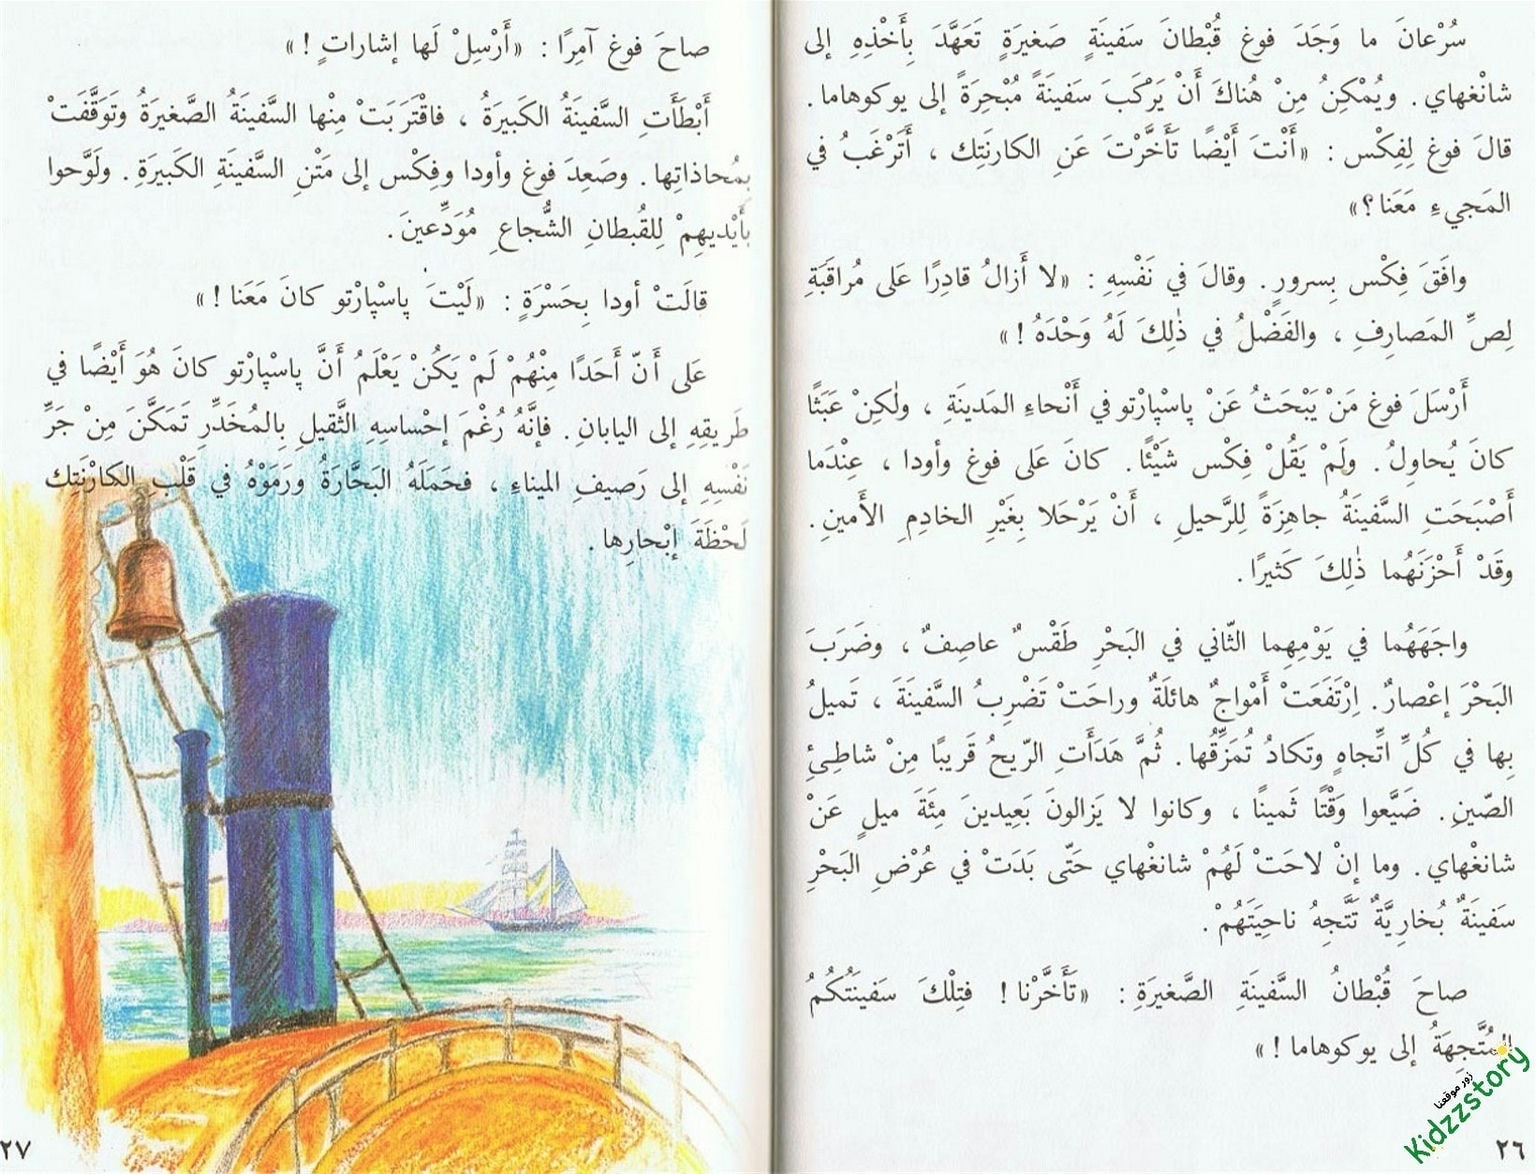 سُرْعانَ ما وَجَدَ فوغ قُبْطانَ سَفينَةٍ صَغيرَةٍ تَعَهَّدَ بِأَخْذِهِ إلى
شانْغهاي. ويُمْكِنُ مِنْ هُناكَ أَنْ يَرْكَبَ سَفينَةً مُبْحِرَةً إلى يوكوهاما.
قالَ فوغ لِفِكْس : «أَنْتَ أَيْضًا تَأَخَّرْتَ عَنِ الكارنَتِك ، أَتَرْغَبُ في
المَجيءِ مَعَنا؟»
وافَقَ فِكْس بِسرورٍ. وقالَ في نَفْسِهِ : «لا أَزالُ قادِرًا عَلى مُراقَبَةِ
لِصِّ المَصارِفِ ، والفَضْلُ في ذٰلِكَ لَهُ وَحْدَهُ !»
أَرْسَلَ فوغ مَنْ يَبْحَثُ عَنْ پاسْپارْتو في أَنْحاءِ المَدينَةِ ، ولٰكِنْ عَبَثًا
كانَ يُحاوِلُ. ولَمْ يَقُلْ فِكْس شَيْئًا. كانَ عَلى فوغ وأودا ، عِنْدَما
أَصْبَحَتِ السَّفينَةُ جاهِزَةً لِلرَّحيلِ ، أَنْ يَرْحَلا بِغَيْرِ الخادِمِ الأَمينِ.
وقَدْ أَحْزَنَهُما ذٰلِكَ كَثيرًا.
واجَهَهُما في يَوْمِهِما الثّاني في البَحْرِ طَقْسٌ عاصِفٌ ، وضَرَبَ
البَحْرَ إعْصارٌ. اِرْتَفَعَتْ أَمْواجٌ هائلَةٌ وراحَتْ تَضْرِبُ السَّفينَةَ ، تَميلُ
بِها في كُلِّ اتِّجاهٍ وتَكادُ تُمَزِّقُها. ثُمَّ هَدَأَتِ الرّيحُ قَريبًا مِنْ شاطِئِ
الصّينِ. ضَيَّعوا وَقْتًا ثَمينًا ، وكانوا لا يَزالونَ بَعيدينَ مِئَةَ ميلٍ عَنْ
شانغْهاي. وما إنْ لاحَتْ لَهُمْ شانغْهاي حَتّى بَدَتْ في عُرْضِ البَحْرِ
سَفينَةٌ بُخارِيَّةٌ تَتَّجِهُ ناحِيَتَهُمْ.
صاحَ قُبْطانُ السَّفينَةِ الصَّغيرَةِ : «تَأَخَّرْنا ! فتِلْكَ سَفينَتُكُمُ
المُتَّجِهَةُ إلى يوكوهاما !»
٢٦
زور موقعنا
Kidzzstory
صاحَ فوغ آمِرًا : «أَرْسِلْ لَها إشاراتٍ !»
أَبْطَأَتِ السَّفينَةُ الكَبيرَةُ ، فاقْتَرَبَتْ مِنْها السَّفينَةُ الصَّغيرَةُ وتَوَقَّفَتْ
بِمُحاذاتِها. وصَعِدَ فوغ وأودا وفِكْس إلى مَتْنِ السَّفينَةِ الكَبيرَةِ. ولَوَّحوا
بِأَيْديهِمْ لِلقُبطانِ الشُّجاعِ مُوَدِّعينَ.
قالَتْ أودا بِحَسْرَةٍ : «لَيْتَ پاسْپارْتو كانَ مَعَنا !»
عَلى أَنّ أَحَدًا مِنْهُمْ لَمْ يَكُنْ يَعْلَمُ أَنَّ پاسْپارْتو كانَ هُوَ أَيْضًا في
طَريقِهِ إلى اليابانِ. فإنَّهُ رُغْمَ إحْساسِهِ الثَّقيلِ بِالمُخَدِّرِ تَمَكَّنَ مِنْ جَرِّ
نَفْسِهِ إلى رَصيفِ الميناءِ ، فحَمَلَهُ البَحَّارَةُ ورَمَوْهُ في قَلْبِ الكارْنَتِك
لَحْظَةَ إبْحارِها.
٢٧